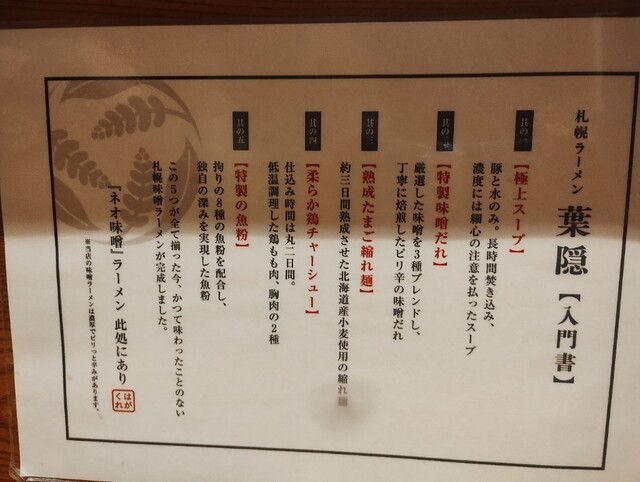 札幌ラーメン 葉隠【入門書】
其の一
【極上スープ】
豚と水のみ。長時間焚き込み、
濃度には細心の注意を払ったスープ
其の二
【特製味噌だれ】
厳選した味噌を3種ブレンドし、
丁寧に焙煎したピリ辛の味噌だれ
其の三
【熟成たまご縮れ麺】
約三日間熟成させた北海道産小麦使用の縮れ麺
其の四
【柔らか鶏チャーシュー】
仕込み時間は丸二日間。
低温調理した鶏もも肉、胸肉の2種
其の五
【特製の魚粉】
拘りの8種の魚粉を配合し、
独自の深みを実現した魚粉
この5つが全て揃った今、かつて味わったことのない
札幌味噌ラーメンが完成しました。
『ネオ味噌』ラーメン 此処にあり
はがくれ
※当店の味噌ラーメンは濃厚でピリッと辛みがあります。